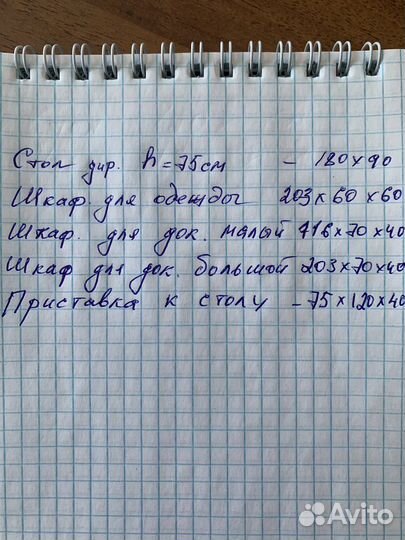 Стол дир. h=75см - 180×90
Шкаф для одежды 203×60×60
Шкаф. для док. малый 116×70×40
Шкаф для док. большой 203×70×40
Приставка к столу - 75×120×40
Avito